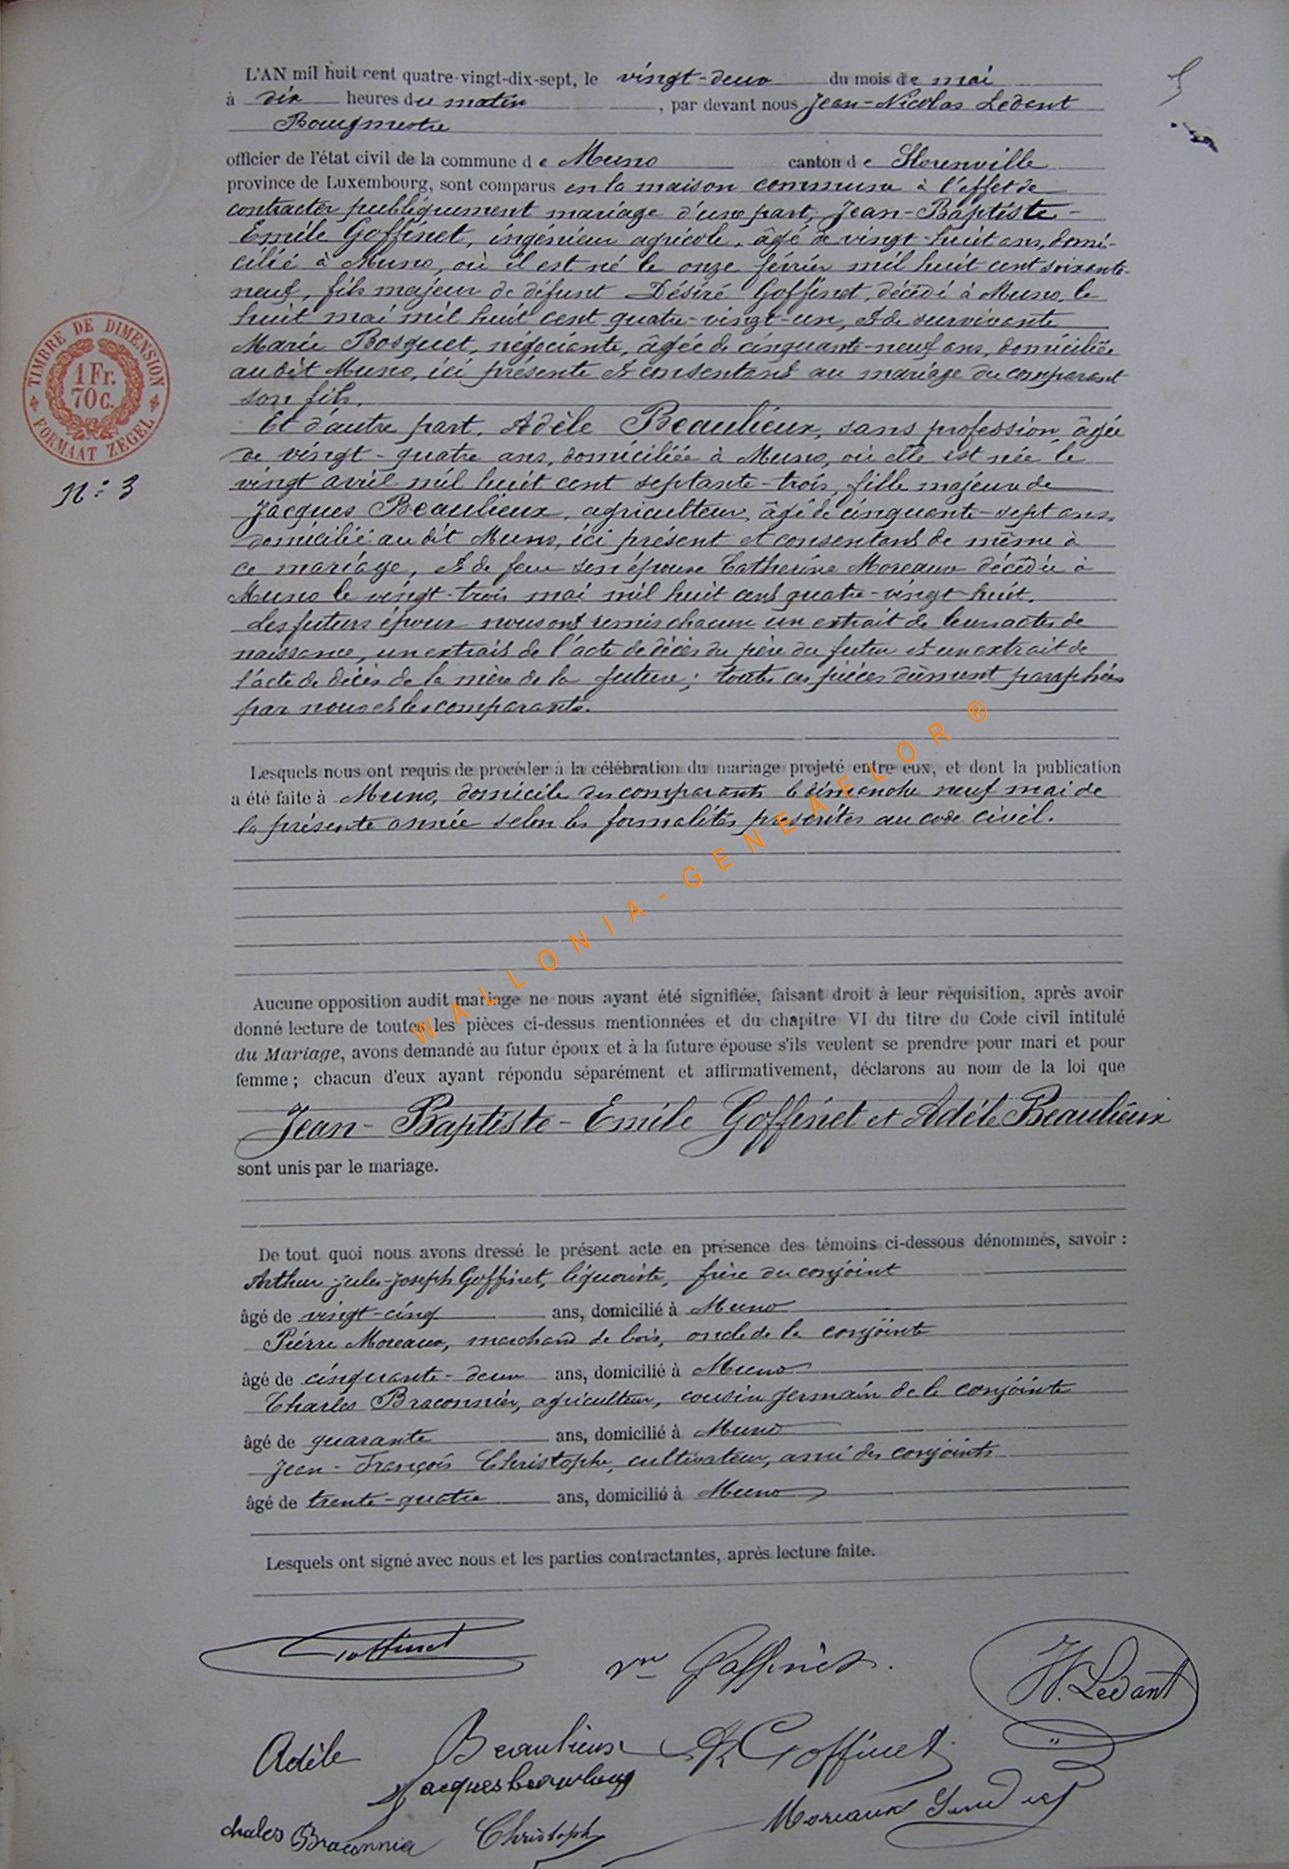 L'AN mil huit cent quatre-vingt-dix-sept, le vingt-deux du mois de mai
à dix heures du matin, par devant nous Jean-Nicolas Ledent
Bourgmestre
officier de l'état civil de la commune de Muno canton de Florenville
province de Luxembourg, sont comparus en la maison commune à l'effet de
contracter publiquement mariage d'une part, Jean-Baptiste-
Emile Goffinet, ingénieur agricole, âgé de vingt-huit ans, domi-
cilié à Muno, où il est né le onze février mil huit cent soixante-
neuf, fils majeur de défunt Désiré Goffinet, décédé à Muno, le
huit mai mil huit cent quatre-vingt-un, & de survivante
Marie Bosquet, négociante, âgée de cinquante-neuf ans, domiciliée
au dit Muno, ici présente et consentant au mariage du comparant
son fils.
TIMBRE DE DIMENSION
1 Fr.
70 C.
FORMAAT ZEGEL
Et d'autre part, Adèle Beaulieux, sans profession, âgée
de vingt-quatre ans, domiciliée à Muno, où elle est née le
N° 3
vingt avril mil huit cent septante-trois, fille majeure de
Jacques Beaulieux, agriculteur, âgé de cinquante-sept ans,
domicilié au dit Muno, ici présent et consentant de même à
ce mariage, & de feue son épouse Catherine Moreaux décédée à
Muno le vingt-trois mai mil huit cent quatre-vingt-huit.
Les futurs époux nous ont remis chacun un extrait de leurs actes de
naissance, un extrait de l'acte de décès du père du futur et un extrait de
l'acte de décès de la mère de la future; toutes ces pièces dûment paraphées
par nous et les comparants.
Lesquels nous ont requis de procéder à la célébration du mariage projeté entre eux, et dont la publication
a été faite à Muno, domicile des comparants le dimanche neuf mai de
la présente année selon les formalités prescrites au code civil.
WALLONIA-GENEAFLOR ®
Aucune opposition audit mariage ne nous ayant été signifiée, faisant droit à leur réquisition, après avoir
donné lecture de toutes les pièces ci-dessus mentionnées et du chapitre VI du titre du Code civil intitulé
du Mariage, avons demandé au futur époux et à la future épouse s'ils veulent se prendre pour mari et pour
femme ; chacun d'eux ayant répondu séparément et affirmativement, déclarons au nom de la loi que
Jean-Baptiste-Emile Goffinet et Adèle Beaulieux
sont unis par le mariage.
De tout quoi nous avons dressé le présent acte en présence des témoins ci-dessous dénommés, savoir :
Arthur-Jules-Joseph Goffinet, liquoriste, frère du conjoint
âgé de vingt-cinq ans, domicilié à Muno
Pierre Moreaux, marchand de bois, oncle de la conjointe
âgé de cinquante-deux ans, domicilié à Muno
Charles Braconnier, agriculteur, cousin germain de la conjointe
âgé de quarante ans, domicilié à Muno
Jean-François Christophe, cultivateur, ami des conjoints
âgé de trente-quatre ans, domicilié à Muno
Lesquels ont signé avec nous et les parties contractantes, après lecture faite.
Goffinet
Vve Goffinet.
N. Ledant
Adèle Beaulieux
Goffinet
Jacques beaulieux
Moreaux
chales Braconnier
Christophe